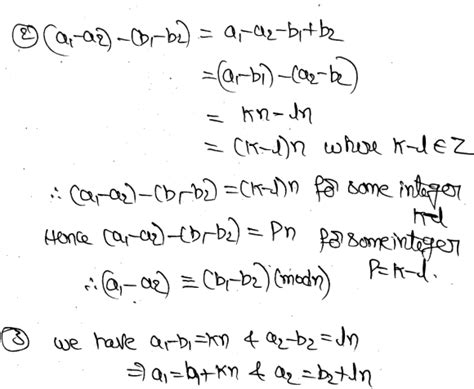 ② (a₁-a₂)-(b₁-b₂) = a₁-a₂-b₁+b₂
=(a₁-b₁)-(a₂-b₂)
= kn-ln
= (k-l)n where k-l∈Z
∴ (a₁-a₂)-(b₁-b₂)=(k-l)n for some integer
k-l
Hence (a₁-a₂)-(b₁-b₂)=Pn for some integer
P=k-l.
∴(a₁-a₂) ≡ (b₁-b₂)(modn)
③ we have a₁-b₁=kn & a₂-b₂=ln
⇒ a₁=b₁+kn & a₂=b₂+ln